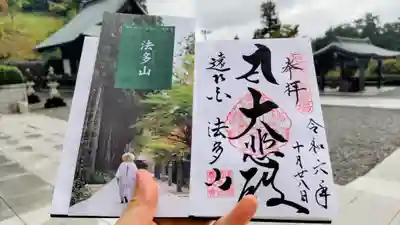 法多山
奉拝
令和六年
十月廿八日
大悲殿
遠州
法多山